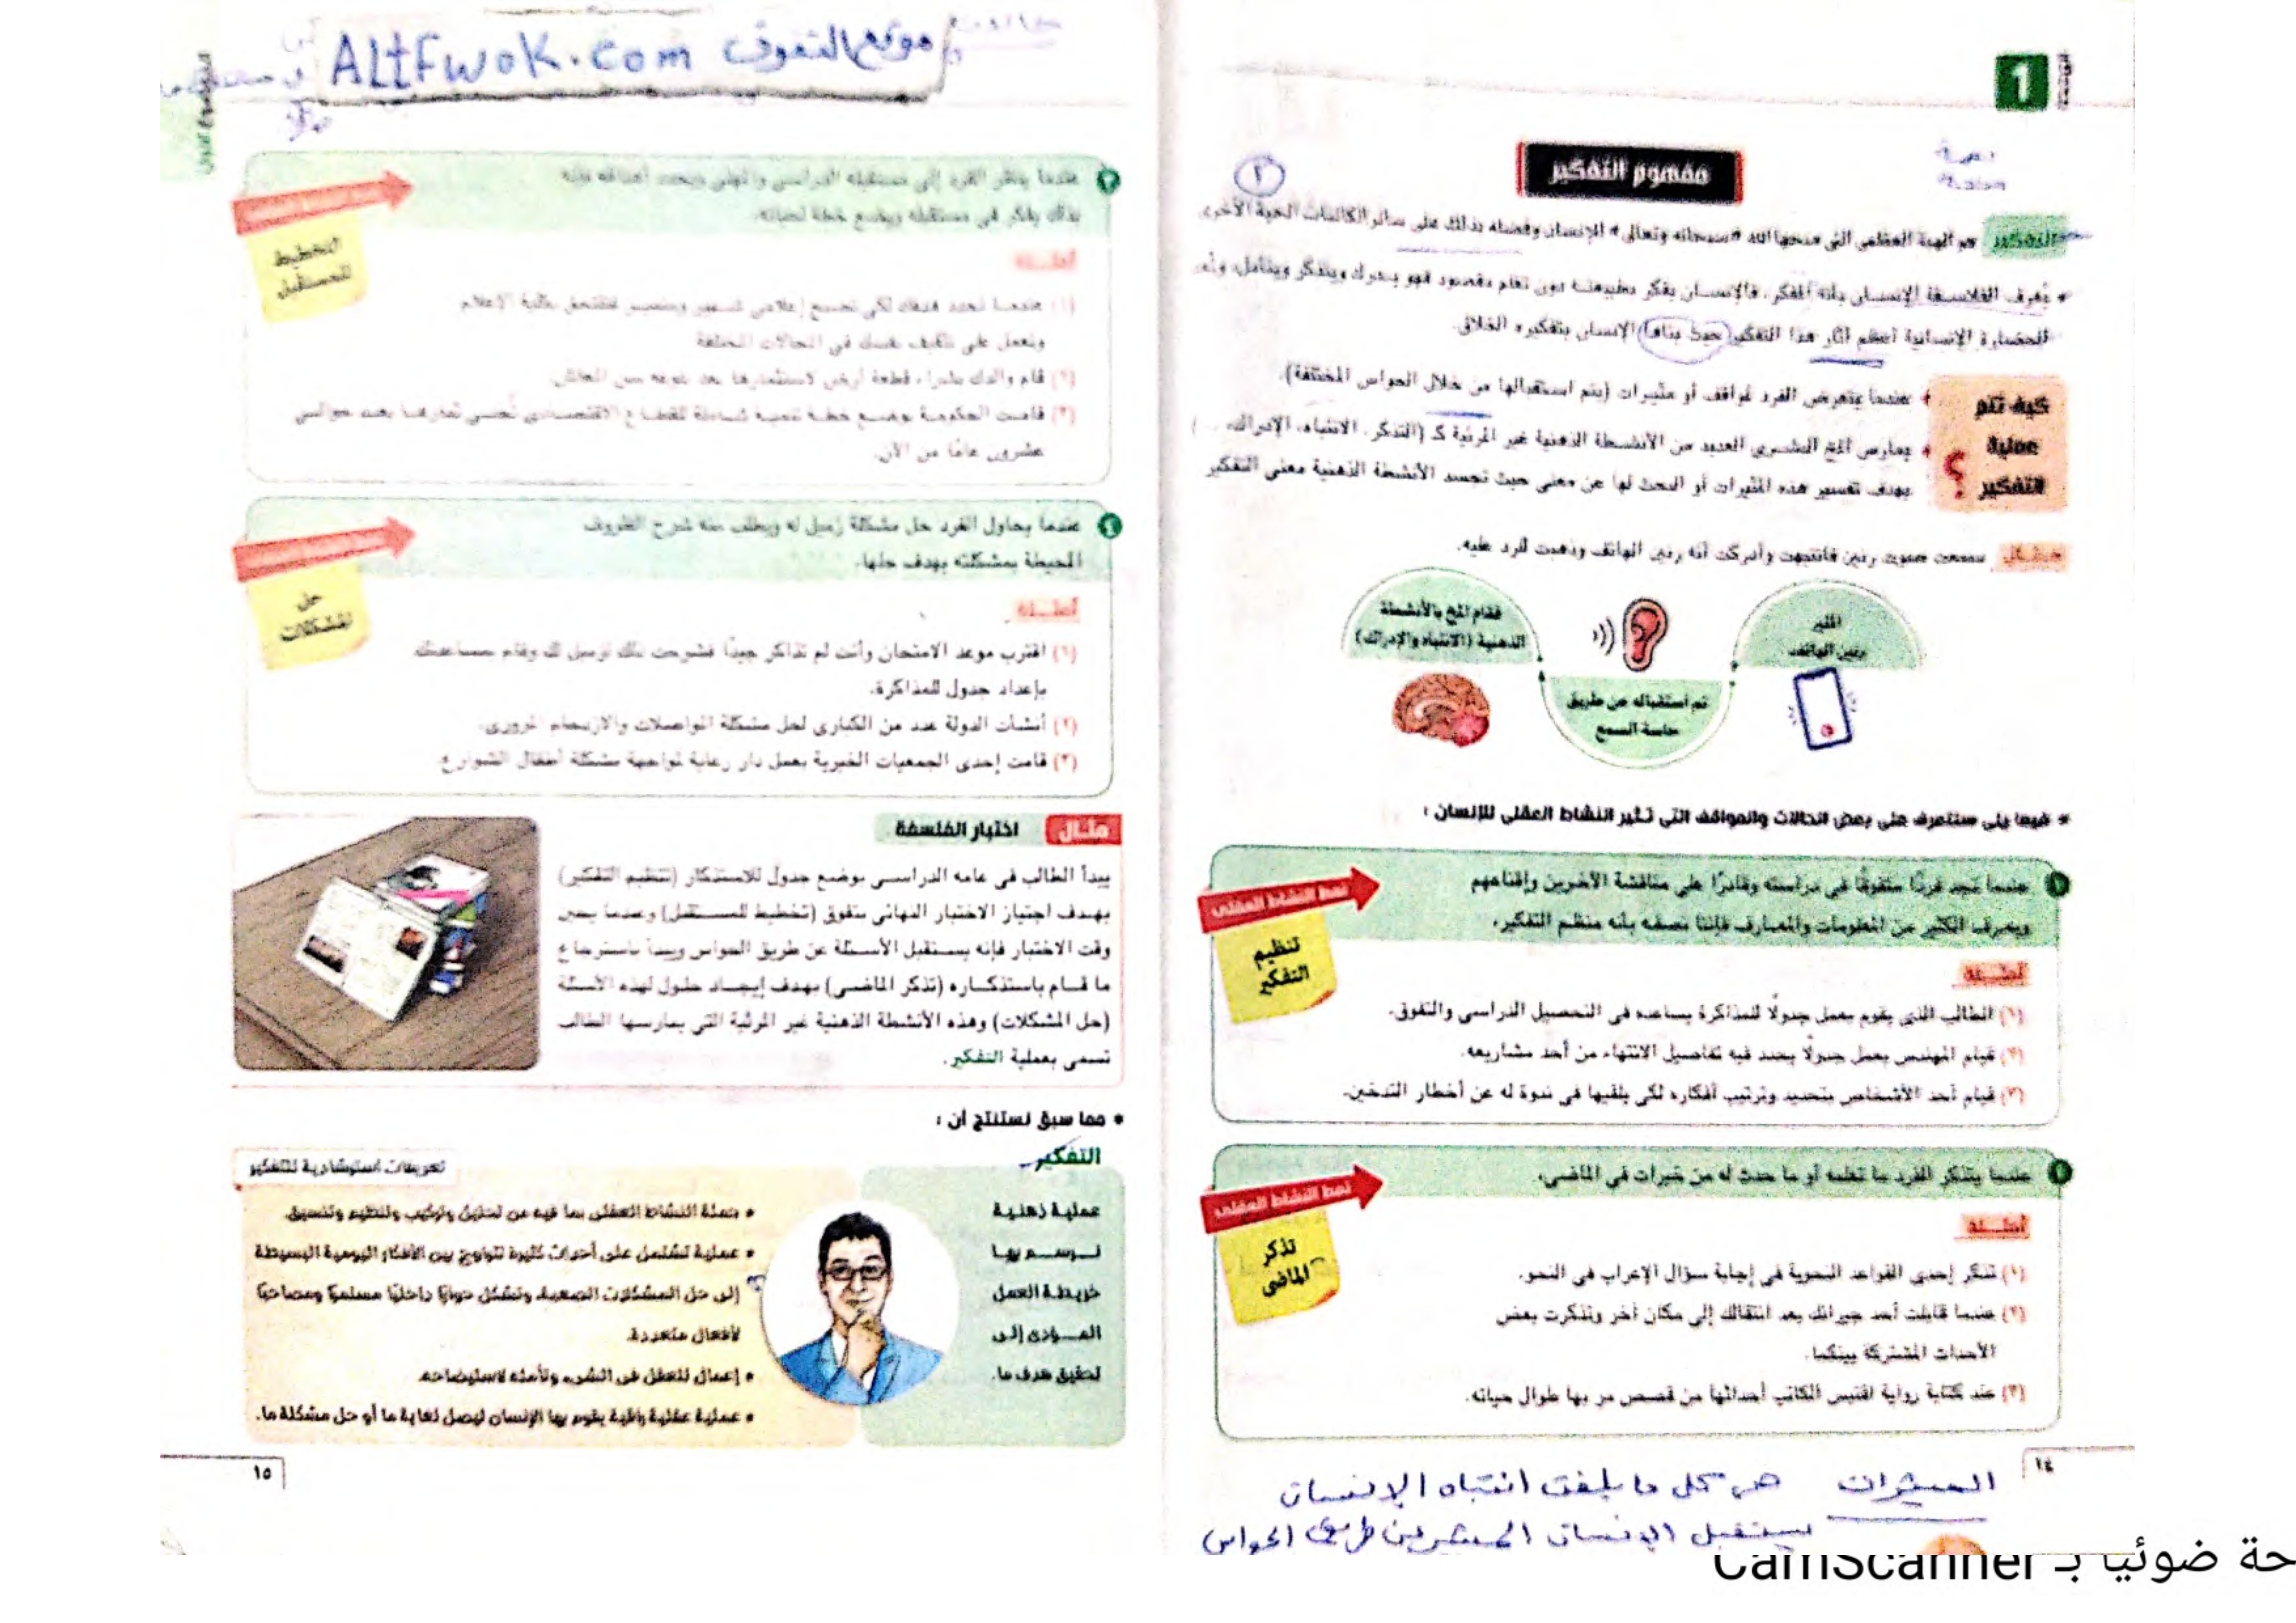 1
مفهوم التفكير
٢
التفكير هو الهبة العظمى التى منحها الله «سبحانه وتعالى» للإنسان وفضله بذلك على سائر الكائنات الحية الأخرى
* يُعرف الفلاسفة الإنسان بأنه المفكر، فالإنسان يفكر بطبيعته دون تعلم مقصود فهو يدرك ويتذكر ويتأمل،
الحضارة الإنسانية أعظم آثار هذا التفكير حيث بناها الإنسان بتفكيره الخلاق.
كيف تتم
عملية
التفكير ؟
عندما يتعرض الفرد لمواقف أو مثيرات (يتم استقبالها من خلال الحواس المختلفة).
يمارس المخ البشرى العديد من الأنشطة الذهنية غير المرئية كـ (التذكر، الانتباه، الإدراك، ...)
بهدف تفسير هذه المثيرات أو البحث لها عن معنى حيث تجسد الأنشطة الذهنية معنى التفكير
مثال سمعت صوت رنين فانتبهت وأدركت أنه رنين الهاتف وذهبت للرد عليه.
المثير
رنين الهاتف
تم استقباله عن طريق
حاسة السمع
فقام المخ بالأنشطة
الذهنية (الانتباه والإدراك)
* فيما يلى ستتعرف على بعض الحالات والمواقف التى تثير النشاط العقلى للإنسان :
١ عندما نجد فردًا متفوقًا فى دراسته وقادرًا على مناقشة الآخرين وإقناعهم
ويعرف الكثير من المعلومات والمعارف فإننا نصفه بأنه منظم التفكير.
نمط النشاط العقلى
تنظيم
التفكير
أمثلة
(١) الطالب الذى يقوم بعمل جدولًا للمذاكرة يساعده فى التحصيل الدراسى والتفوق.
(٢) قيام المهندس بعمل جدولًا يحدد فيه تفاصيل الانتهاء من أحد مشاريعه.
(٣) قيام أحد الأشخاص بتحديد وترتيب أفكاره لكى يلقيها فى ندوة له عن أخطار التدخين.
٢ عندما يتذكر الفرد ما تعلمه أو ما حدث له من خبرات فى الماضى.
نمط النشاط العقلى
تذكر
الماضى
أمثلة
(١) تذكر إحدى القواعد النحوية فى إجابة سؤال الإعراب فى النحو.
(٢) عندما قابلت أحد جيرانك بعد انتقالك إلى مكان آخر وتذكرت بعض
الأحداث المشتركة بينكما.
(٣) عند كتابة رواية اقتبس الكاتب أحداثها من قصص مر بها طوال حياته.
١٤
المثيرات هى كل ما يلفت انتباه الإنسان
يستقبل الإنسان المثير عن طريق الحواس
موقع التفوق ALtFwok.com
٣ عندما ينظر الفرد إلى مستقبله الدراسى والمهنى ويحدد أهدافه فإنه
بذلك يفكر فى مستقبله ويضع خطة لحياته.
التخطيط
للمستقبل
أمثلة
(١) عندما تحدد هدفك لكى تصبح إعلامى شهير ومتميز فتلتحق بكلية الإعلام
وتعمل على تثقيف نفسك فى المجالات المختلفة
(٢) قام والدك بشراء قطعة أرض لاستثمارها بعد خروجه من المعاش.
(٣) قامت الحكومة بوضع خطة تنمية شاملة للقطاع الاقتصادى تُجنى ثمارها بعد حوالى
عشرون عامًا من الآن.
٤ عندما يحاول الفرد حل مشكلة زميل له ويطلب منه شرح الظروف
المحيطة بمشكلته بهدف حلها.
حل
المشكلات
أمثلة
(١) اقترب موعد الامتحان وأنت لم تذاكر جيدًا فشرحت ذلك لزميل لك وقام بمساعدتك
بإعداد جدول للمذاكرة.
(٢) أنشأت الدولة عدد من الكبارى لحل مشكلة المواصلات والازدحام المرورى.
(٣) قامت إحدى الجمعيات الخيرية بعمل دار رعاية لمواجهة مشكلة أطفال الشوارع.
مثال اختبار الفلسفة
يبدأ الطالب فى عامه الدراسى بوضع جدول للاستذكار (تنظيم التفكير)
بهدف اجتياز الاختبار النهائى بتفوق (تخطيط للمستقبل) وعندما يحين
وقت الاختبار فإنه يستقبل الأسئلة عن طريق الحواس ويبدأ باسترجاع
ما قام باستذكاره (تذكر الماضى) بهدف إيجاد حلول لهذه الأسئلة
(حل المشكلات) وهذه الأنشطة الذهنية غير المرئية التى يمارسها الطالب
تسمى بعملية التفكير.
* مما سبق نستنتج أن :
التفكير
عملية ذهنية
نرسم بها
خريطة العمل
المؤدى إلى
تحقيق هدف ما.
تعريفات استرشادية للتفكير
* جملة النشاط العقلى بما فيه من تحليل وتركيب وتنظيم وتنسيق.
* عملية تشتمل على أحداث كثيرة تتراوح بين الأفكار اليومية البسيطة
إلى حل المشكلات الصعبة، وتشكل حوارًا داخليًا مستمرًا ومصاحبًا
لأفعال متعددة.
* إعمال للعقل فى الشىء وتأمله لاستيضاحه.
* عملية عقلية راقية يقوم بها الإنسان ليصل لغاية ما أو حل مشكلة ما.
١٥
حة ضوئيا بـ CamScanner